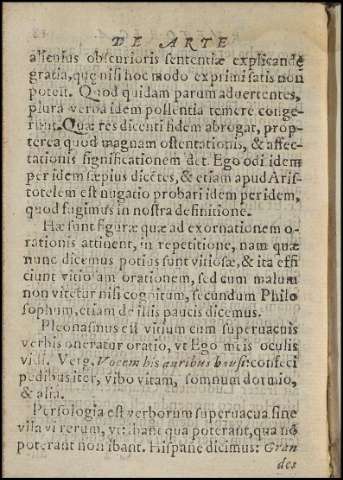 DE ARTE
alicuius obscurioris sententiæ explicandę
gratia, quę nisi hoc modo exprimi satis non
potest. Quod quidam parum aduertentes,
plura verba idem possentia temere conge
runt. Quæ res dicenti fidem abrogat, prop-
terea quod magnam ostentationis, & affec-
tationis significationem det. Ego odi idem
per idem sæpius dicẽtes, & etiam apud Aris-
totelem est nugatio probari idem per idem,
quod fugimus in nostra definitione.
Hæ sunt figuræ quæ ad exornationem o-
rationis attinent, in repetitione, nam quæ
nunc dicemus potius sunt vitiosæ, & ita effi
ciunt vitiosam orationem, sed cum malum
non vitetur nisi cognitum, secundum Philo
sophum, etiam de illis paucis dicemus.
Pleonasmus est vitium cum superuacuis
verbis oneratur oratio, vt Ego meis oculis
vidi. Verg. Vocem his auribus hausi: confeci
pedibus iter, vibo vitam, somnum dormio,
& alia.
Persologia est verborum superuacua sine
vlla vi rerum, vt: ibant qua poterant, qua nõ
poterant non ibant. Hispane dicimus: Gran
des